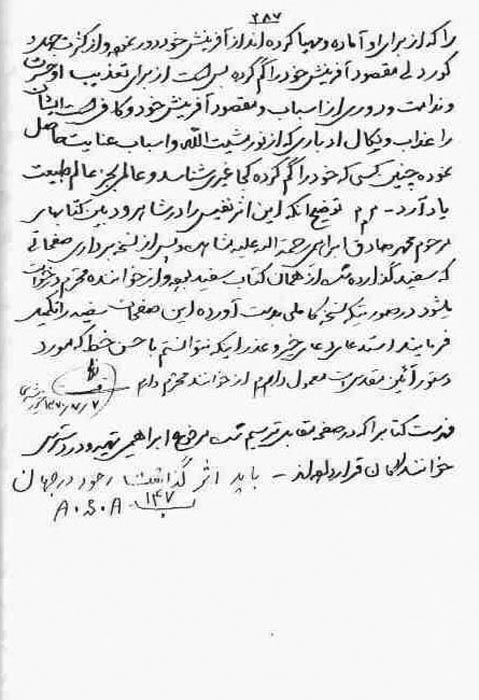 ۲۸۷
را که از برای او آماده و مهیا کرده اند از آفرینش خود دور نموده و از کثرت جهل و
کوردلی مقصود آفرینش خود را گم کرده بس است از برای تعذیب او حسرت
و ندامت و دوری از اسباب و مقصود آفرینش خود و کافی است ایشان
را عذاب و نکال ادباری که از نور مشیت الله و اسباب عنایت حاصل
نموده چنین کسی که خود را گم کرده کجا غیری شناسد و عالمی بجز عالم طبیعت
یاد آرد - م م توضیح آنکه این اثر نفیس را در شاهرود بین کتابهای
مرحوم محمد صادق ابراهیمی رحمة اله علیه پس از نسخه برداری صفحاتی
که سفید گذارده شده از همان کتاب سفید بوده و از خواننده محترم درخواست
میشود در صورتیکه نسخه کاملی بدست آورده این صفحات سفید را تکمیل
فرمایند استدعای دعای خیر و عذر اینکه نتوانستم با حسن خط که مورد
دستور آئین مقدس است معمول دارم از خواننده محترم دارم
۱۳۷۰/۷/۷
فهرست کتاب را که در صفحه مقابل ترسیم شده مرحوم ابراهیمی تهیه و در دسترس
خوانندگان قرار داده اند - باید اثر گذاشت ز خود در جهان
۱۴۷
A.S.A